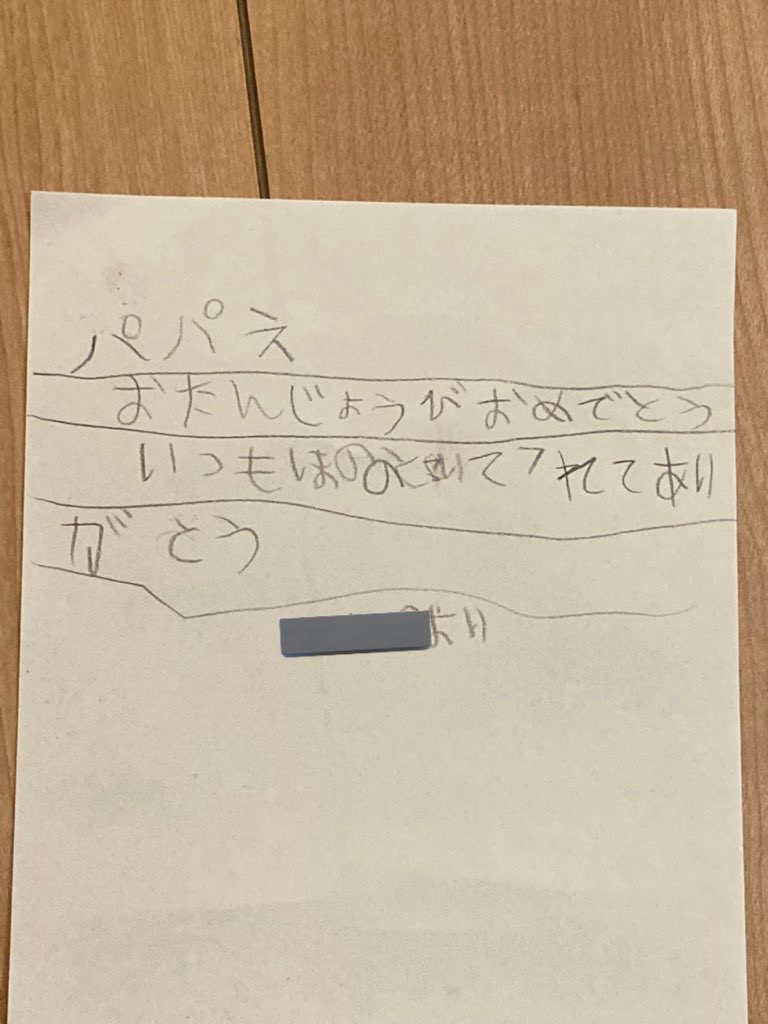 パパえ
おたんじょうびおめでとう
いつもはのおてれてあり
がとう
より